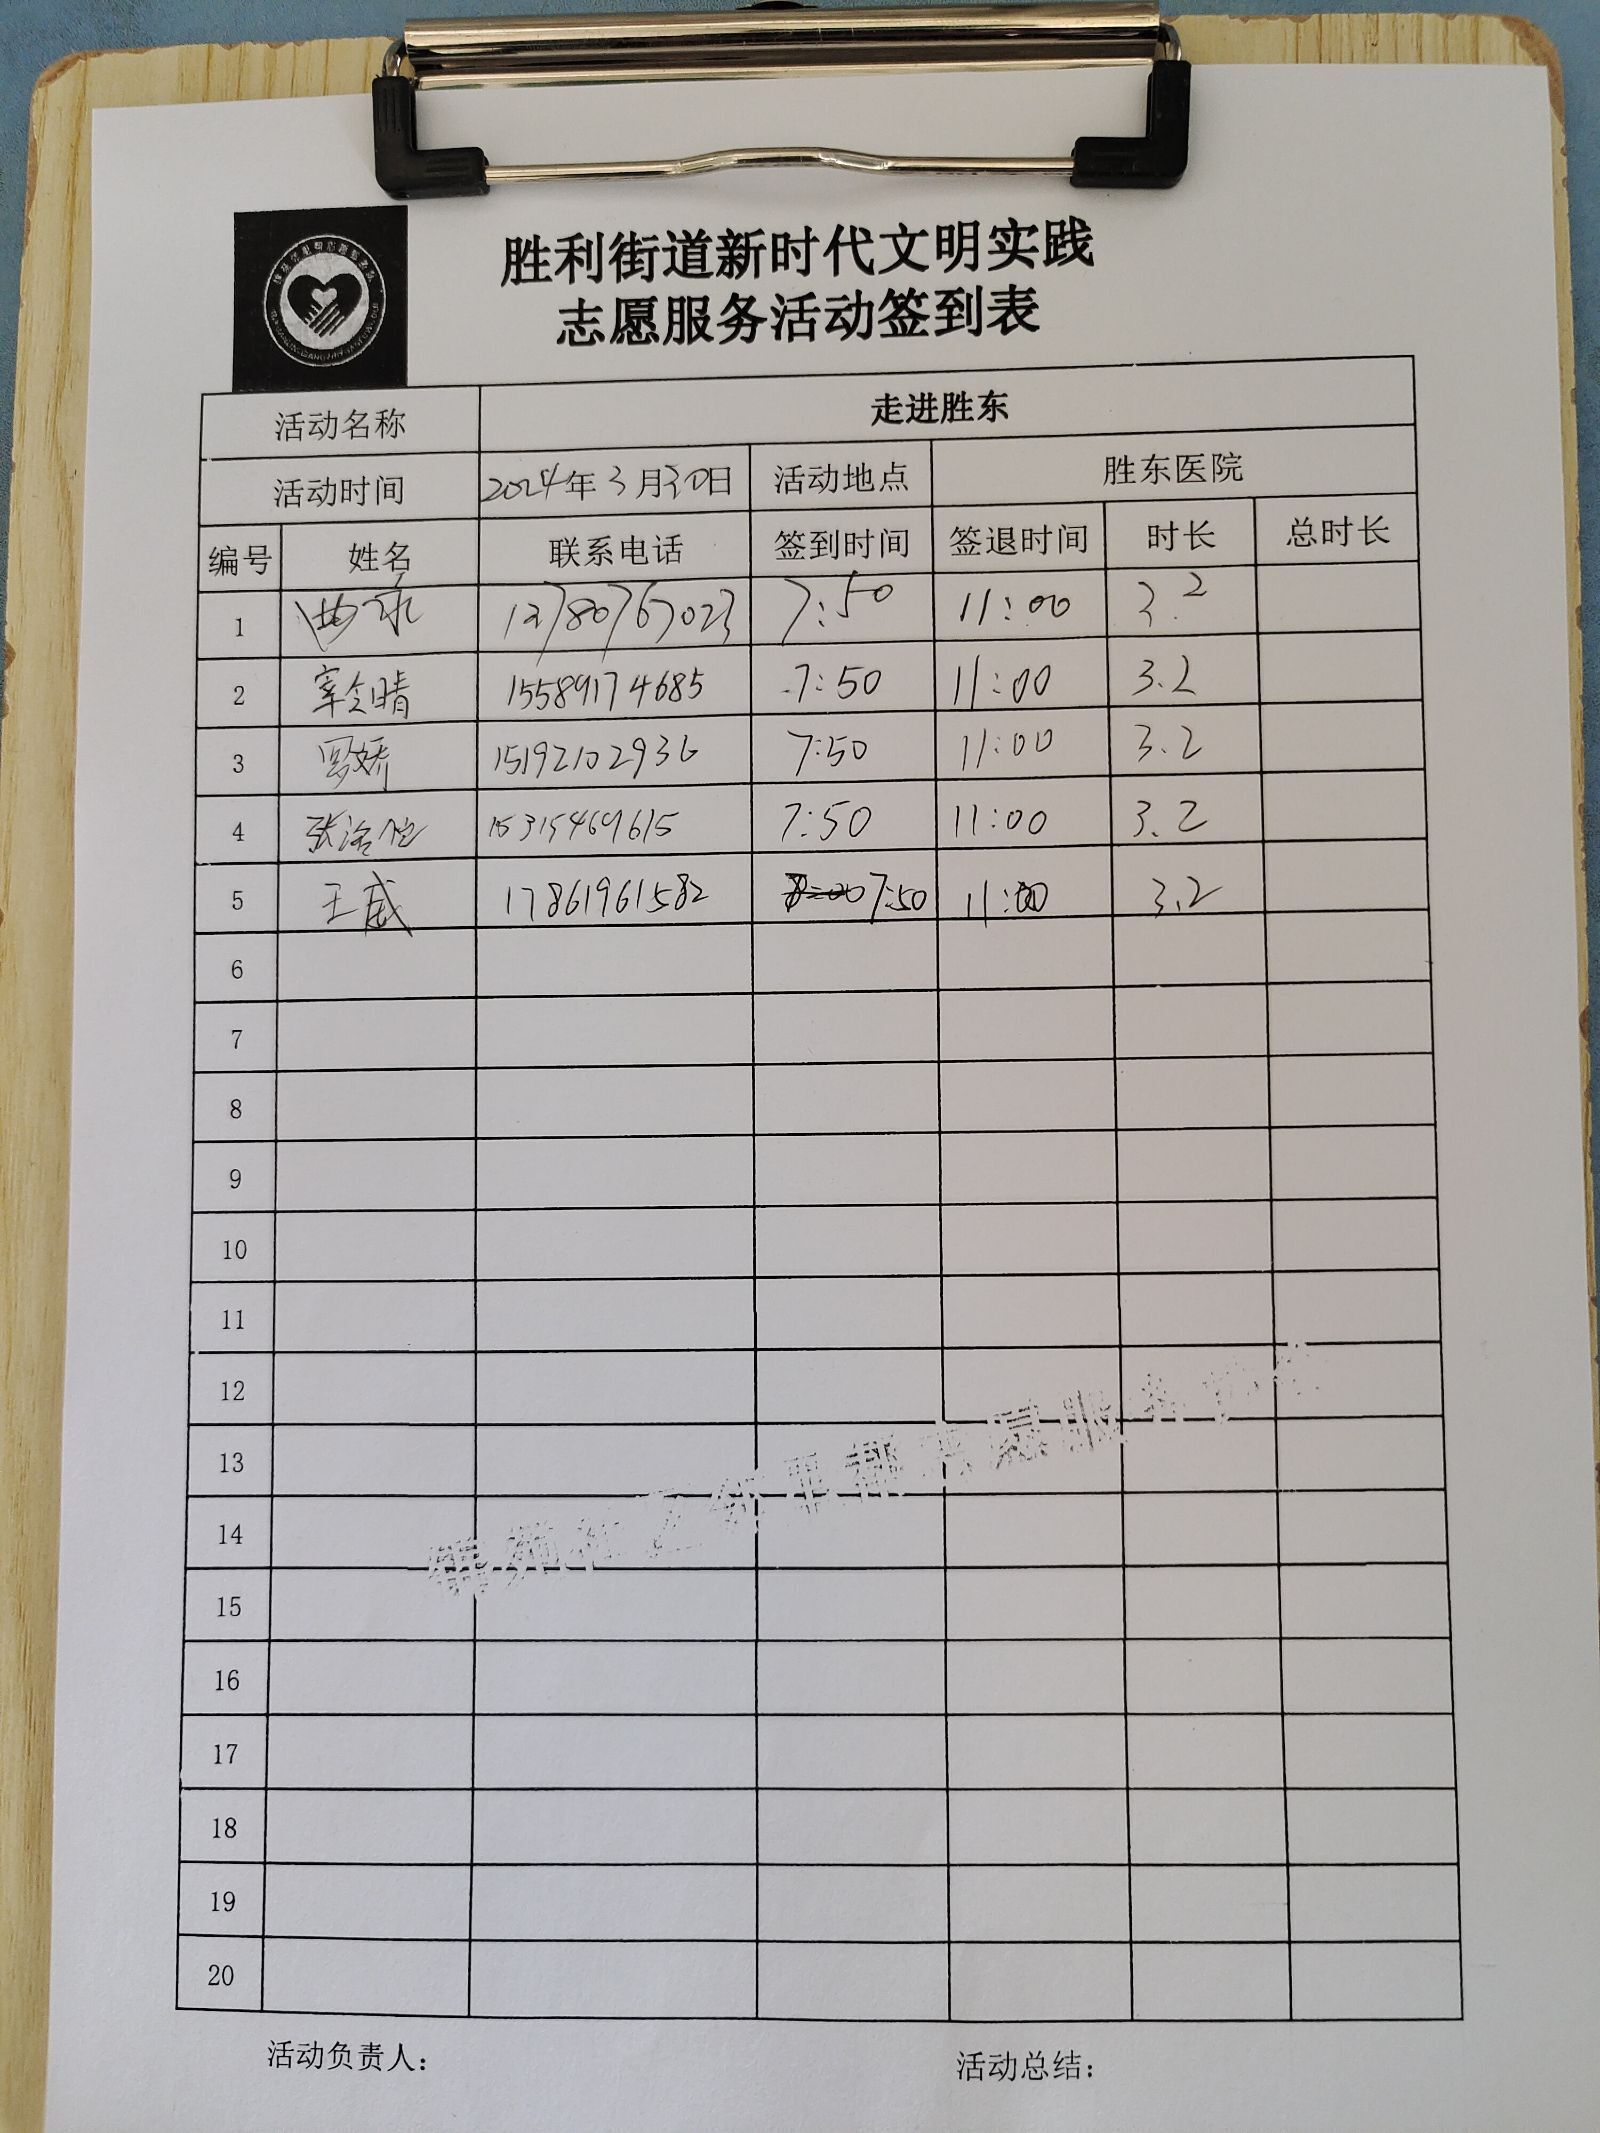 胜利街道新时代文明实践
志愿服务活动签到表
活动名称 走进胜东
活动时间 2024年3月30日 活动地点 胜东医院
编号 姓名 联系电话 签到时间 签退时间 时长 总时长
1 7:50 11:00 3.2
2 15589174685 7:50 11:00 3.2
3 15192102936 7:50 11:00 3.2
4 15315469615 7:50 11:00 3.2
5 王威 17861961582 7:50 11:00 3.2
6
7
8
9
10
11
12
13
14
15
16
17
18
19
20
活动负责人： 活动总结：